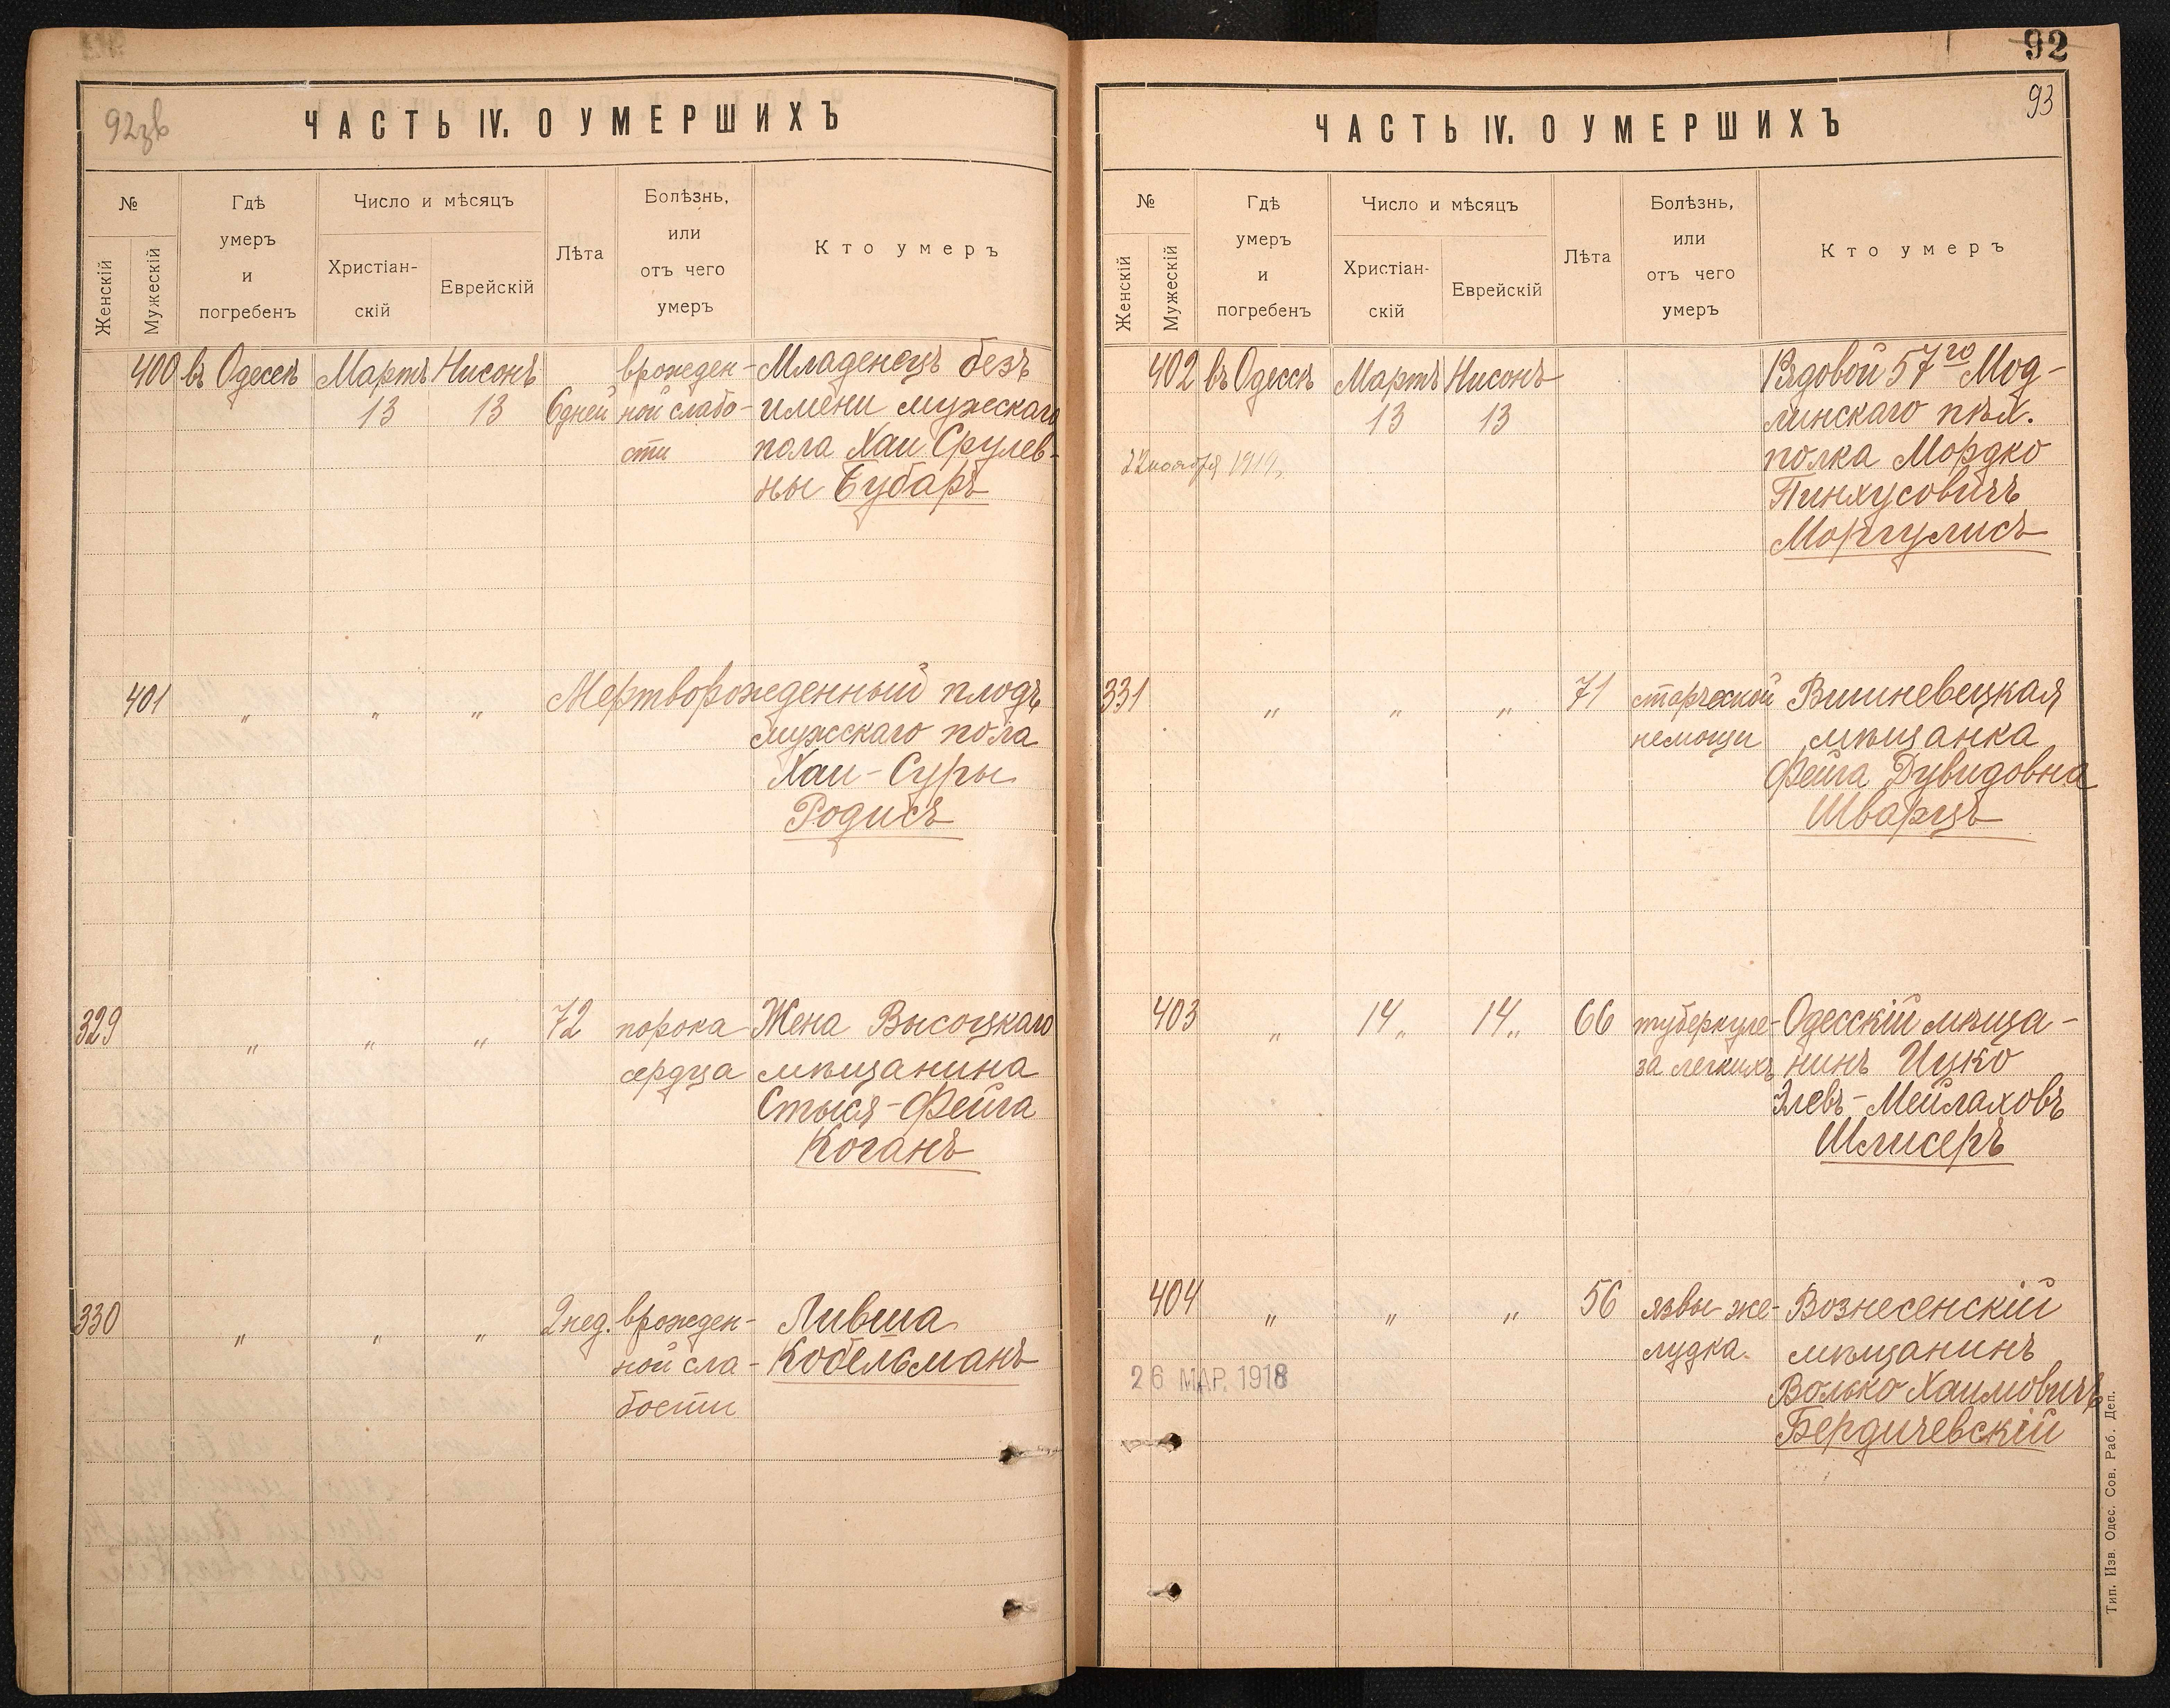 92зв
ЧАСТЬ IV. О УМЕРШИХЪ
№
Женскій
Мужескій
Гдѣ
умеръ
и
погребенъ
Число и мѣсяцъ
Христіан-
скій
Еврейскій
Лѣта
Болѣзнь,
или
отъ чего
умеръ
Кто умеръ
400 въ Одессѣ Мартъ Нисонъ врожден- Младенецъ безъ
13 13 6 дней ной слабо- имени мужескаго
сти пола Хаи Срулев-
ны Бубаръ
401 „ „ „ Мертворожденный плодъ
мужскаго пола
Хаи-Суры
Родисъ
329 „ „ „ 72 порока Жена Высоцкаго
сердца мѣщанина
Стыся-Фейга
Коганъ
330 „ „ „ 2 нед. врожден- Ливша
ной сла- Кобельманъ
бости
92
93
ЧАСТЬ IV. О УМЕРШИХЪ
№
Женскій
Мужескій
Гдѣ
умеръ
и
погребенъ
Число и мѣсяцъ
Христіан-
скій
Еврейскій
Лѣта
Болѣзнь,
или
отъ чего
умеръ
Кто умеръ
402 въ Одессѣ Мартъ Нисонъ Рядовой 57го Мод-
13 13 линскаго пѣх.
22 ноября 1919 полка Мордко
Пинхусовичъ
Моргулисъ
331 „ „ „ 71 старческой Вишневецкая
немощи мѣщанка
Фейга Дувидовна
Шварцъ
403 „ 14 „ 14 „ 66 туберкуле- Одесскій мѣща-
за легкихъ нинъ Ицко
Элевъ-Мейлаховъ
Шлисеръ
404 „ „ „ 56 язвы же- Вознесенскій
лудка. мѣщанинъ
26 МАР. 1918 Волько Хаимовичъ
Бердичевскій
Тип. Изв. Одес. Сов. Раб. Деп.